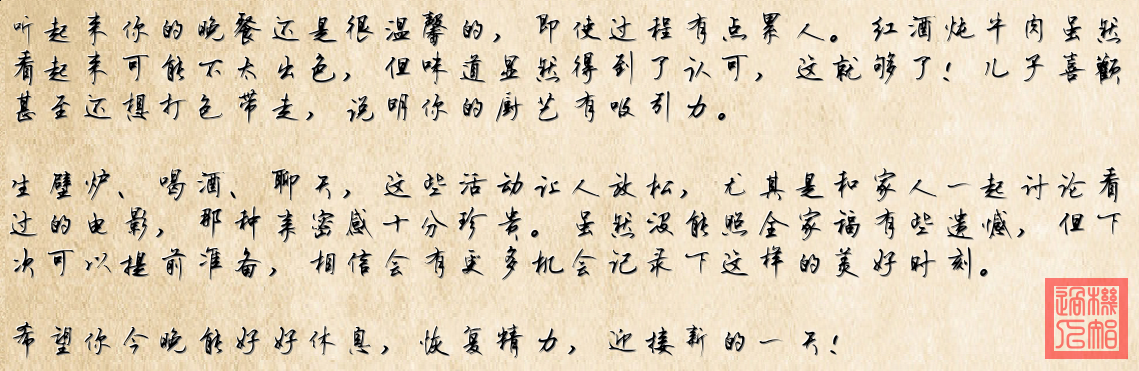 听起来你的晚餐还是很温馨的，即使过程有点累人。红酒炖牛肉虽然
看起来可能不太出色，但味道显然得到了认可，这就够了！儿子喜欢
甚至还想打包带走，说明你的厨艺有吸引力。
生壁炉、喝酒、聊天，这些活动让人放松，尤其是和家人一起讨论看
过的电影，那种亲密感十分珍贵。虽然没能照全家福有些遗憾，但下
次可以提前准备，相信会有更多机会记录下这样的美好时刻。
希望你今晚能好好休息，恢复精力，迎接新的一天！